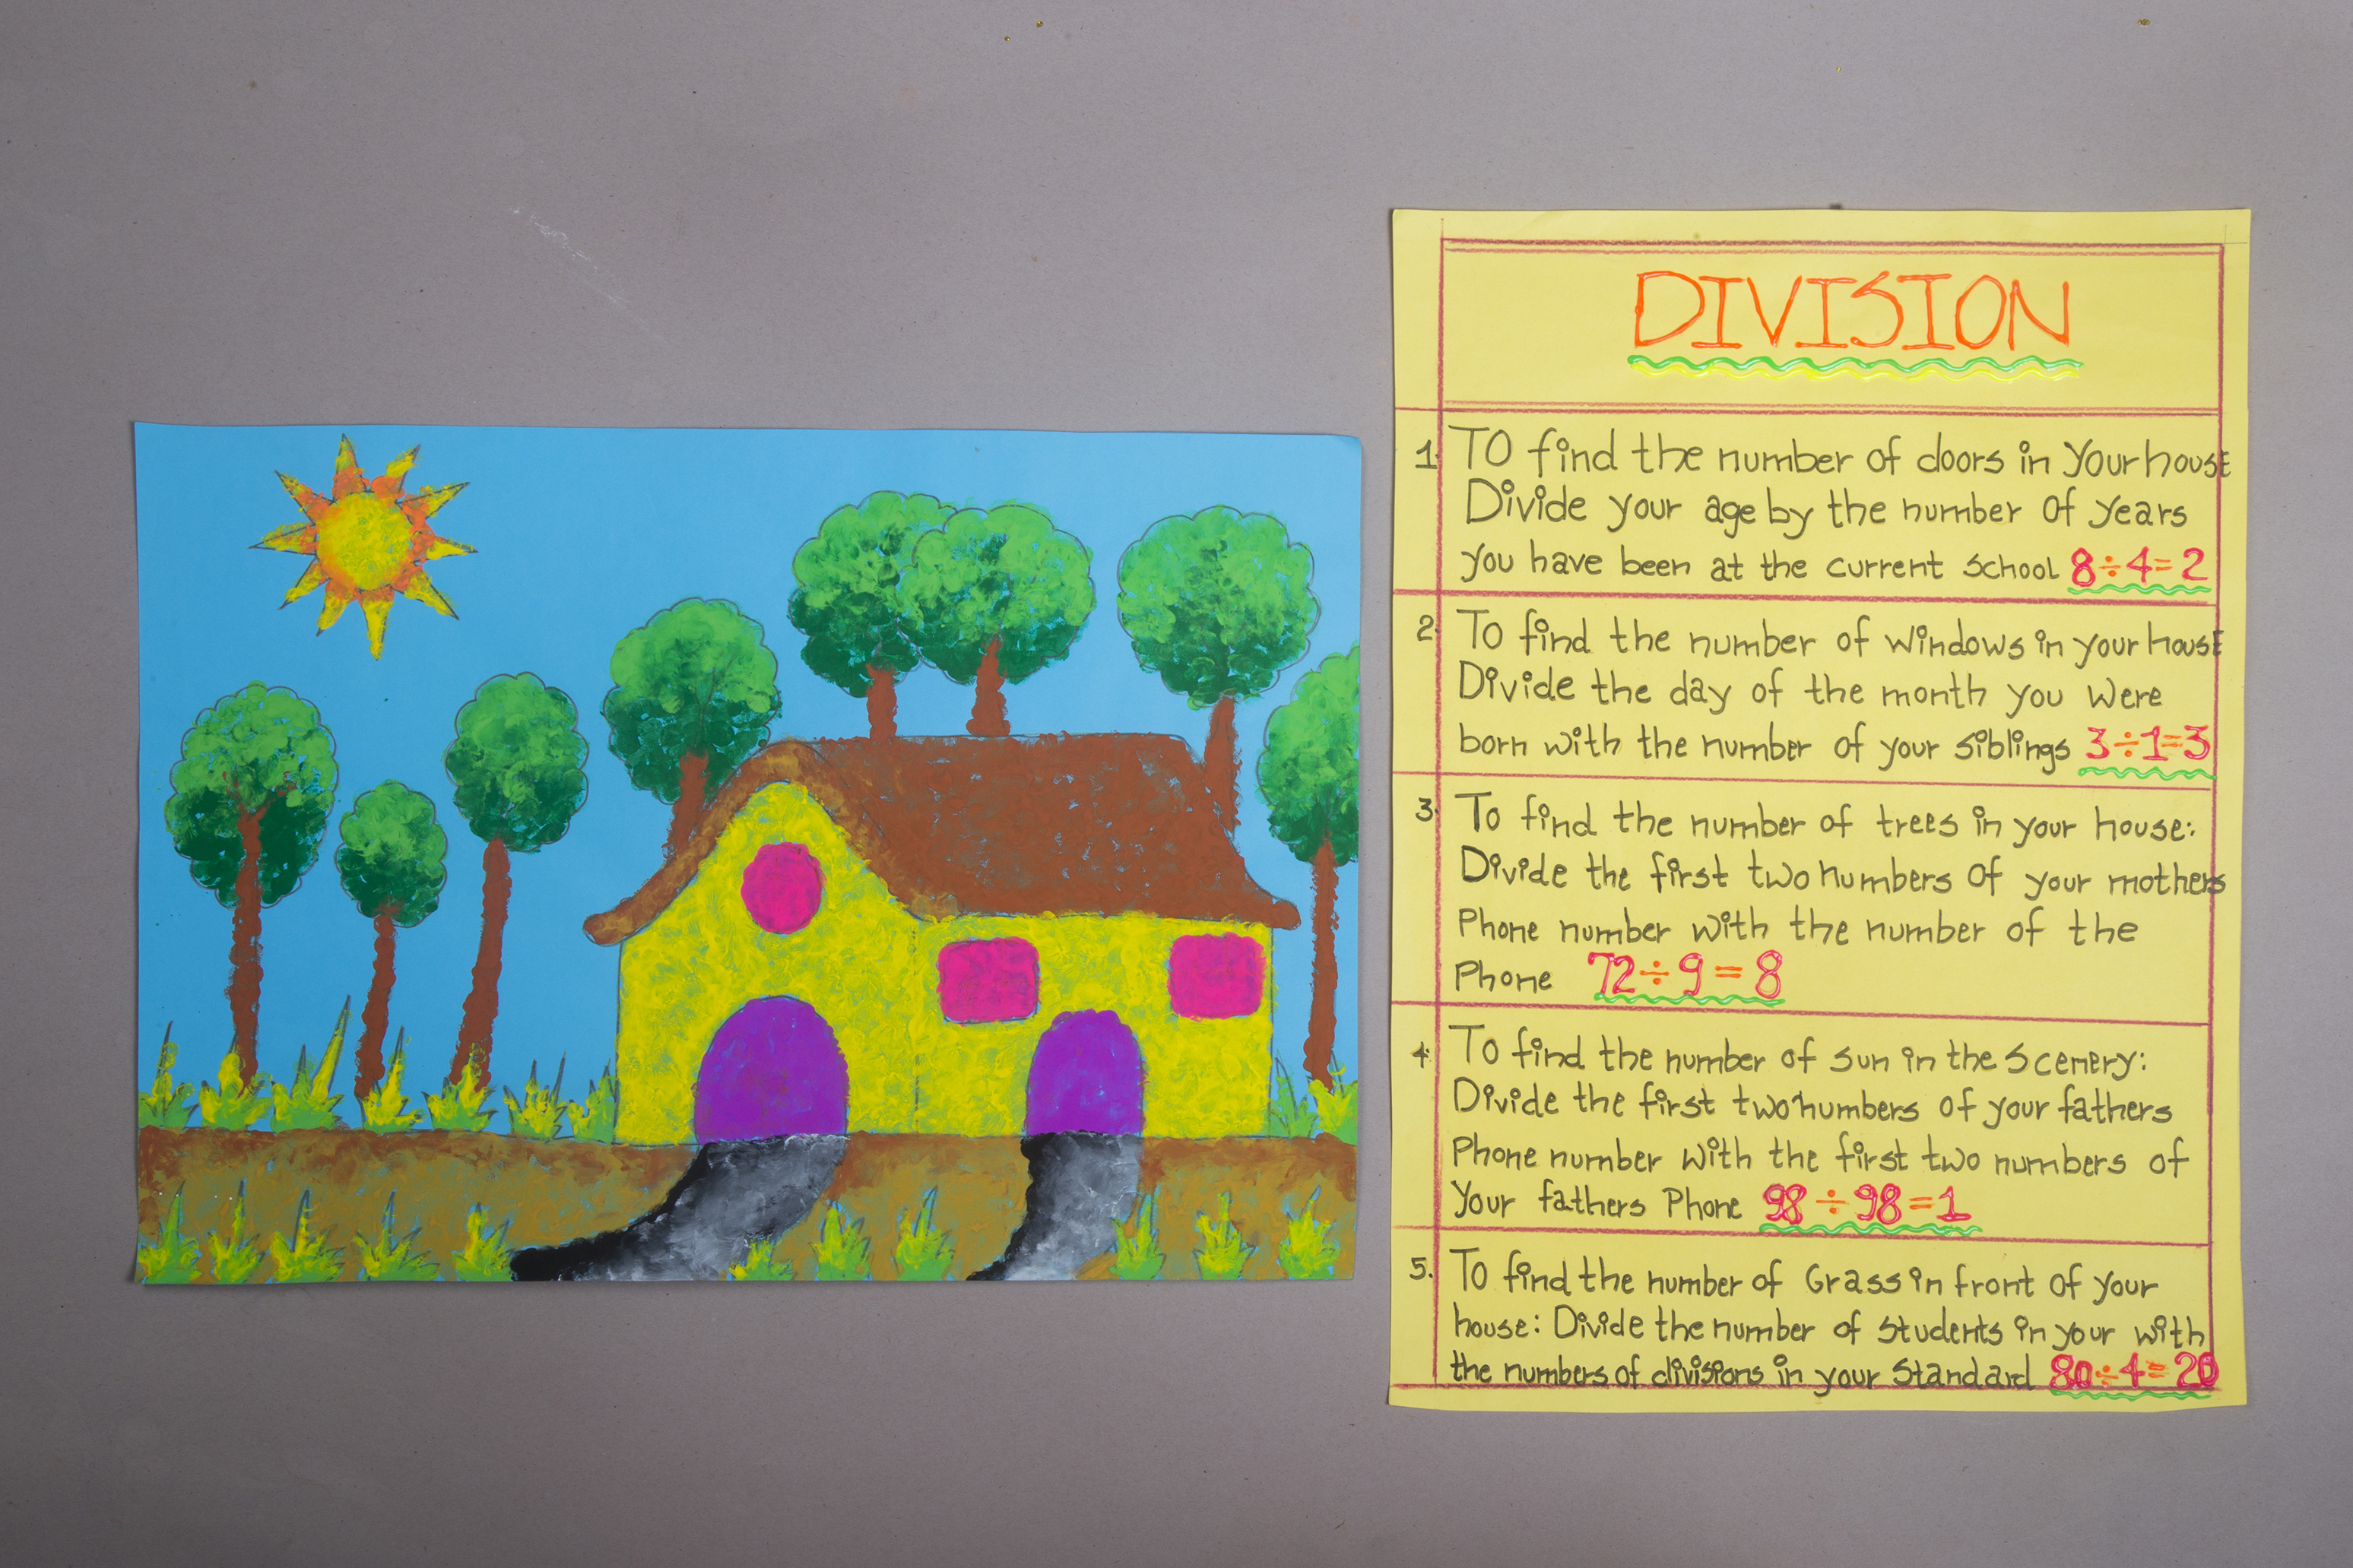 DIVISION
1. TO find the number of doors in your house
Divide your age by the number of years
you have been at the current school 8÷4=2
2. To find the number of windows in your house
Divide the day of the month you were
born with the number of your siblings 3÷1=3
3. To find the number of trees in your house:
Divide the first two numbers of your mothers
Phone number with the number of the
Phone 72÷9=8
4. To find the number of sun in the Scenery:
Divide the first two numbers of your fathers
Phone number with the first two numbers of
your fathers Phone 98÷98=1
5. To find the number of Grass in front of your
house: Divide the number of students in your with
the numbers of divisions in your Standard 80÷4=20